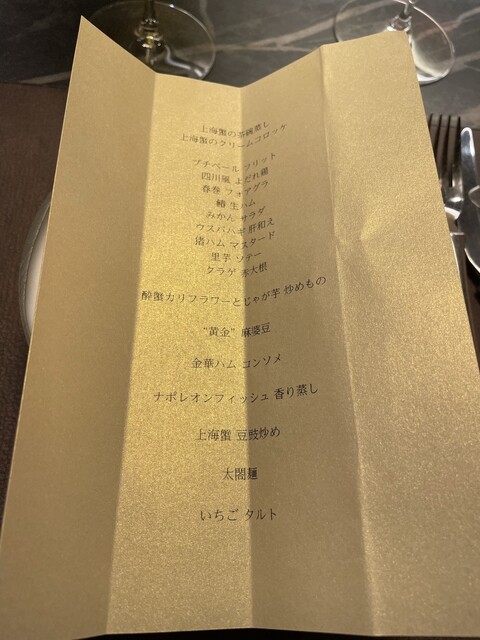 上海蟹の茶碗蒸し
上海蟹のクリームコロッケ
プチベール フリット
四川風 よだれ鶏
春巻 フォアグラ
鰆 生ハム
みかん サラダ
ウスバハギ 肝和え
猪ハム マスタード
里芋 ソテー
クラゲ 赤大根
酔蟹カリフラワーとじゃが芋 炒めもの
"黄金" 麻婆豆
金華ハム コンソメ
ナポレオンフィッシュ 香り蒸し
上海蟹 豆豉炒め
太閤麺
いちご タルト